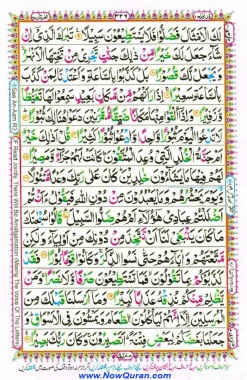 ٣٢٦
لَكَ الْاَمْثَالَ فَضَلُّوْا فَلَا يَسْتَطِيْعُوْنَ سَبِيْلًا تَبٰرَكَ الَّذِيْۤ اِنْ
شَآءَ جَعَلَ لَكَ خَيْرًا مِّنْ ذٰلِكَ جَنّٰتٍ تَجْرِيْ مِنْ تَحْتِهَا الْاَنْهٰرُ
وَيَجْعَلْ لَّكَ قُصُوْرًا بَلْ كَذَّبُوْا بِالسَّاعَةِ وَاَعْتَدْنَا لِمَنْ كَذَّبَ
بِالسَّاعَةِ سَعِيْرًا اِذَا رَاَتْهُمْ مِّنْ مَّكَانٍۭ بَعِيْدٍ سَمِعُوْا لَهَا
تَغَيُّظًا وَّزَفِيْرًا وَاِذَاۤ اُلْقُوْا مِنْهَا مَكَانًا ضَيِّقًا مُّقَرَّنِيْنَ دَعَوْا هُنَالِكَ ثُبُوْرًا
لَا تَدْعُوا الْيَوْمَ ثُبُوْرًا وَّاحِدًا وَّادْعُوْا ثُبُوْرًا كَثِيْرًا قُلْ اَذٰلِكَ خَيْرٌ
اَمْ جَنَّةُ الْخُلْدِ الَّتِيْ وُعِدَ الْمُتَّقُوْنَ كَانَتْ لَهُمْ جَزَآءً وَّمَصِيْرًا
لَهُمْ فِيْهَا مَا يَشَآءُوْنَ خٰلِدِيْنَ كَانَ عَلٰى رَبِّكَ وَعْدًا مَّسْئُوْلًا
وَيَوْمَ يَحْشُرُهُمْ وَمَا يَعْبُدُوْنَ مِنْ دُوْنِ اللّٰهِ فَيَقُوْلُ ءَاَنْتُمْ
اَضْلَلْتُمْ عِبَادِيْ هٰۤؤُلَآءِ اَمْ هُمْ ضَلُّوا السَّبِيْلَ قَالُوْا سُبْحٰنَكَ
مَا كَانَ يَنْۢبَغِيْ لَنَاۤ اَنْ نَّتَّخِذَ مِنْ دُوْنِكَ مِنْ اَوْلِيَآءَ وَلٰكِنْ
مَّتَّعْتَهُمْ وَاٰبَآءَهُمْ حَتّٰى نَسُوا الذِّكْرَ وَكَانُوْا قَوْمًۢا بُوْرًا فَقَدْ
كَذَّبُوْكُمْ بِمَا تَقُوْلُوْنَ فَمَا تَسْتَطِيْعُوْنَ صَرْفًا وَّلَا نَصْرًا وَمَنْ
يَّظْلِمْ مِّنْكُمْ نُذِقْهُ عَذَابًا كَبِيْرًا وَمَاۤ اَرْسَلْنَا قَبْلَكَ مِنَ
الْمُرْسَلِيْنَ اِلَّاۤ اِنَّهُمْ لَيَاْكُلُوْنَ الطَّعَامَ وَيَمْشُوْنَ فِي الْاَسْوَاقِ وَ
جَعَلْنَا بَعْضَكُمْ لِبَعْضٍ فِتْنَةً اَتَصْبِرُوْنَ وَكَانَ رَبُّكَ بَصِيْرًا
www.NowQuran.com